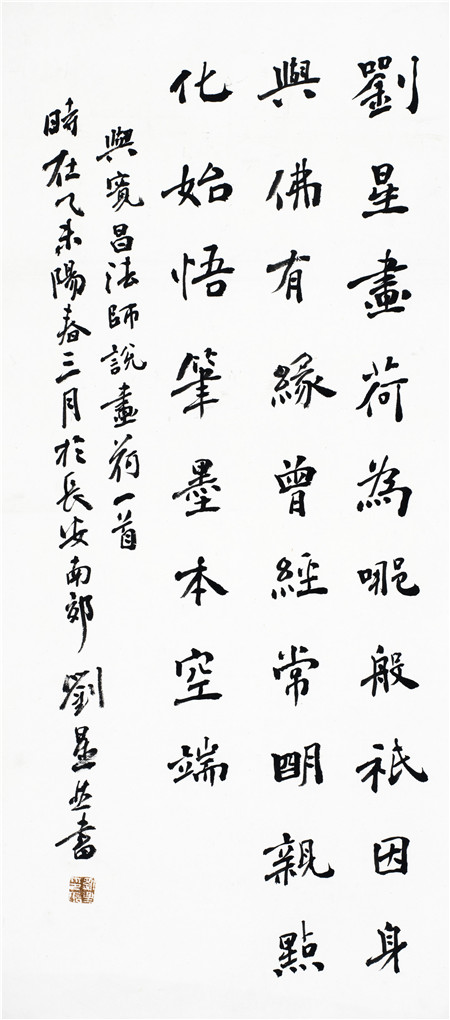 劉星畫荷為哪般祇因身
與佛有緣曾經常明親點
化始悟筆墨本空端
與寬昌法師說畫荷一首
時在乙未陽春三月於長安南郊 劉星並書